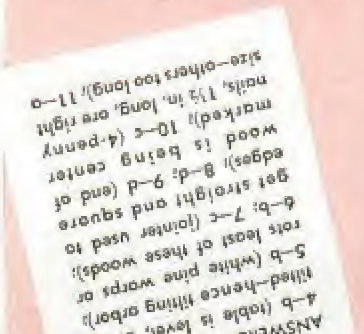 4–b (table is level,
tilted—hence tilting arbor);
5–b (white pine warps or
rots least of these woods);
6–b; 7–c (jointer used to
get straight and square
edges); 8–d; 9–d (end of
wood is being center
marked); 10–c (4-penny
nails, 1½ in. long, are right
size—others too long); 11–a